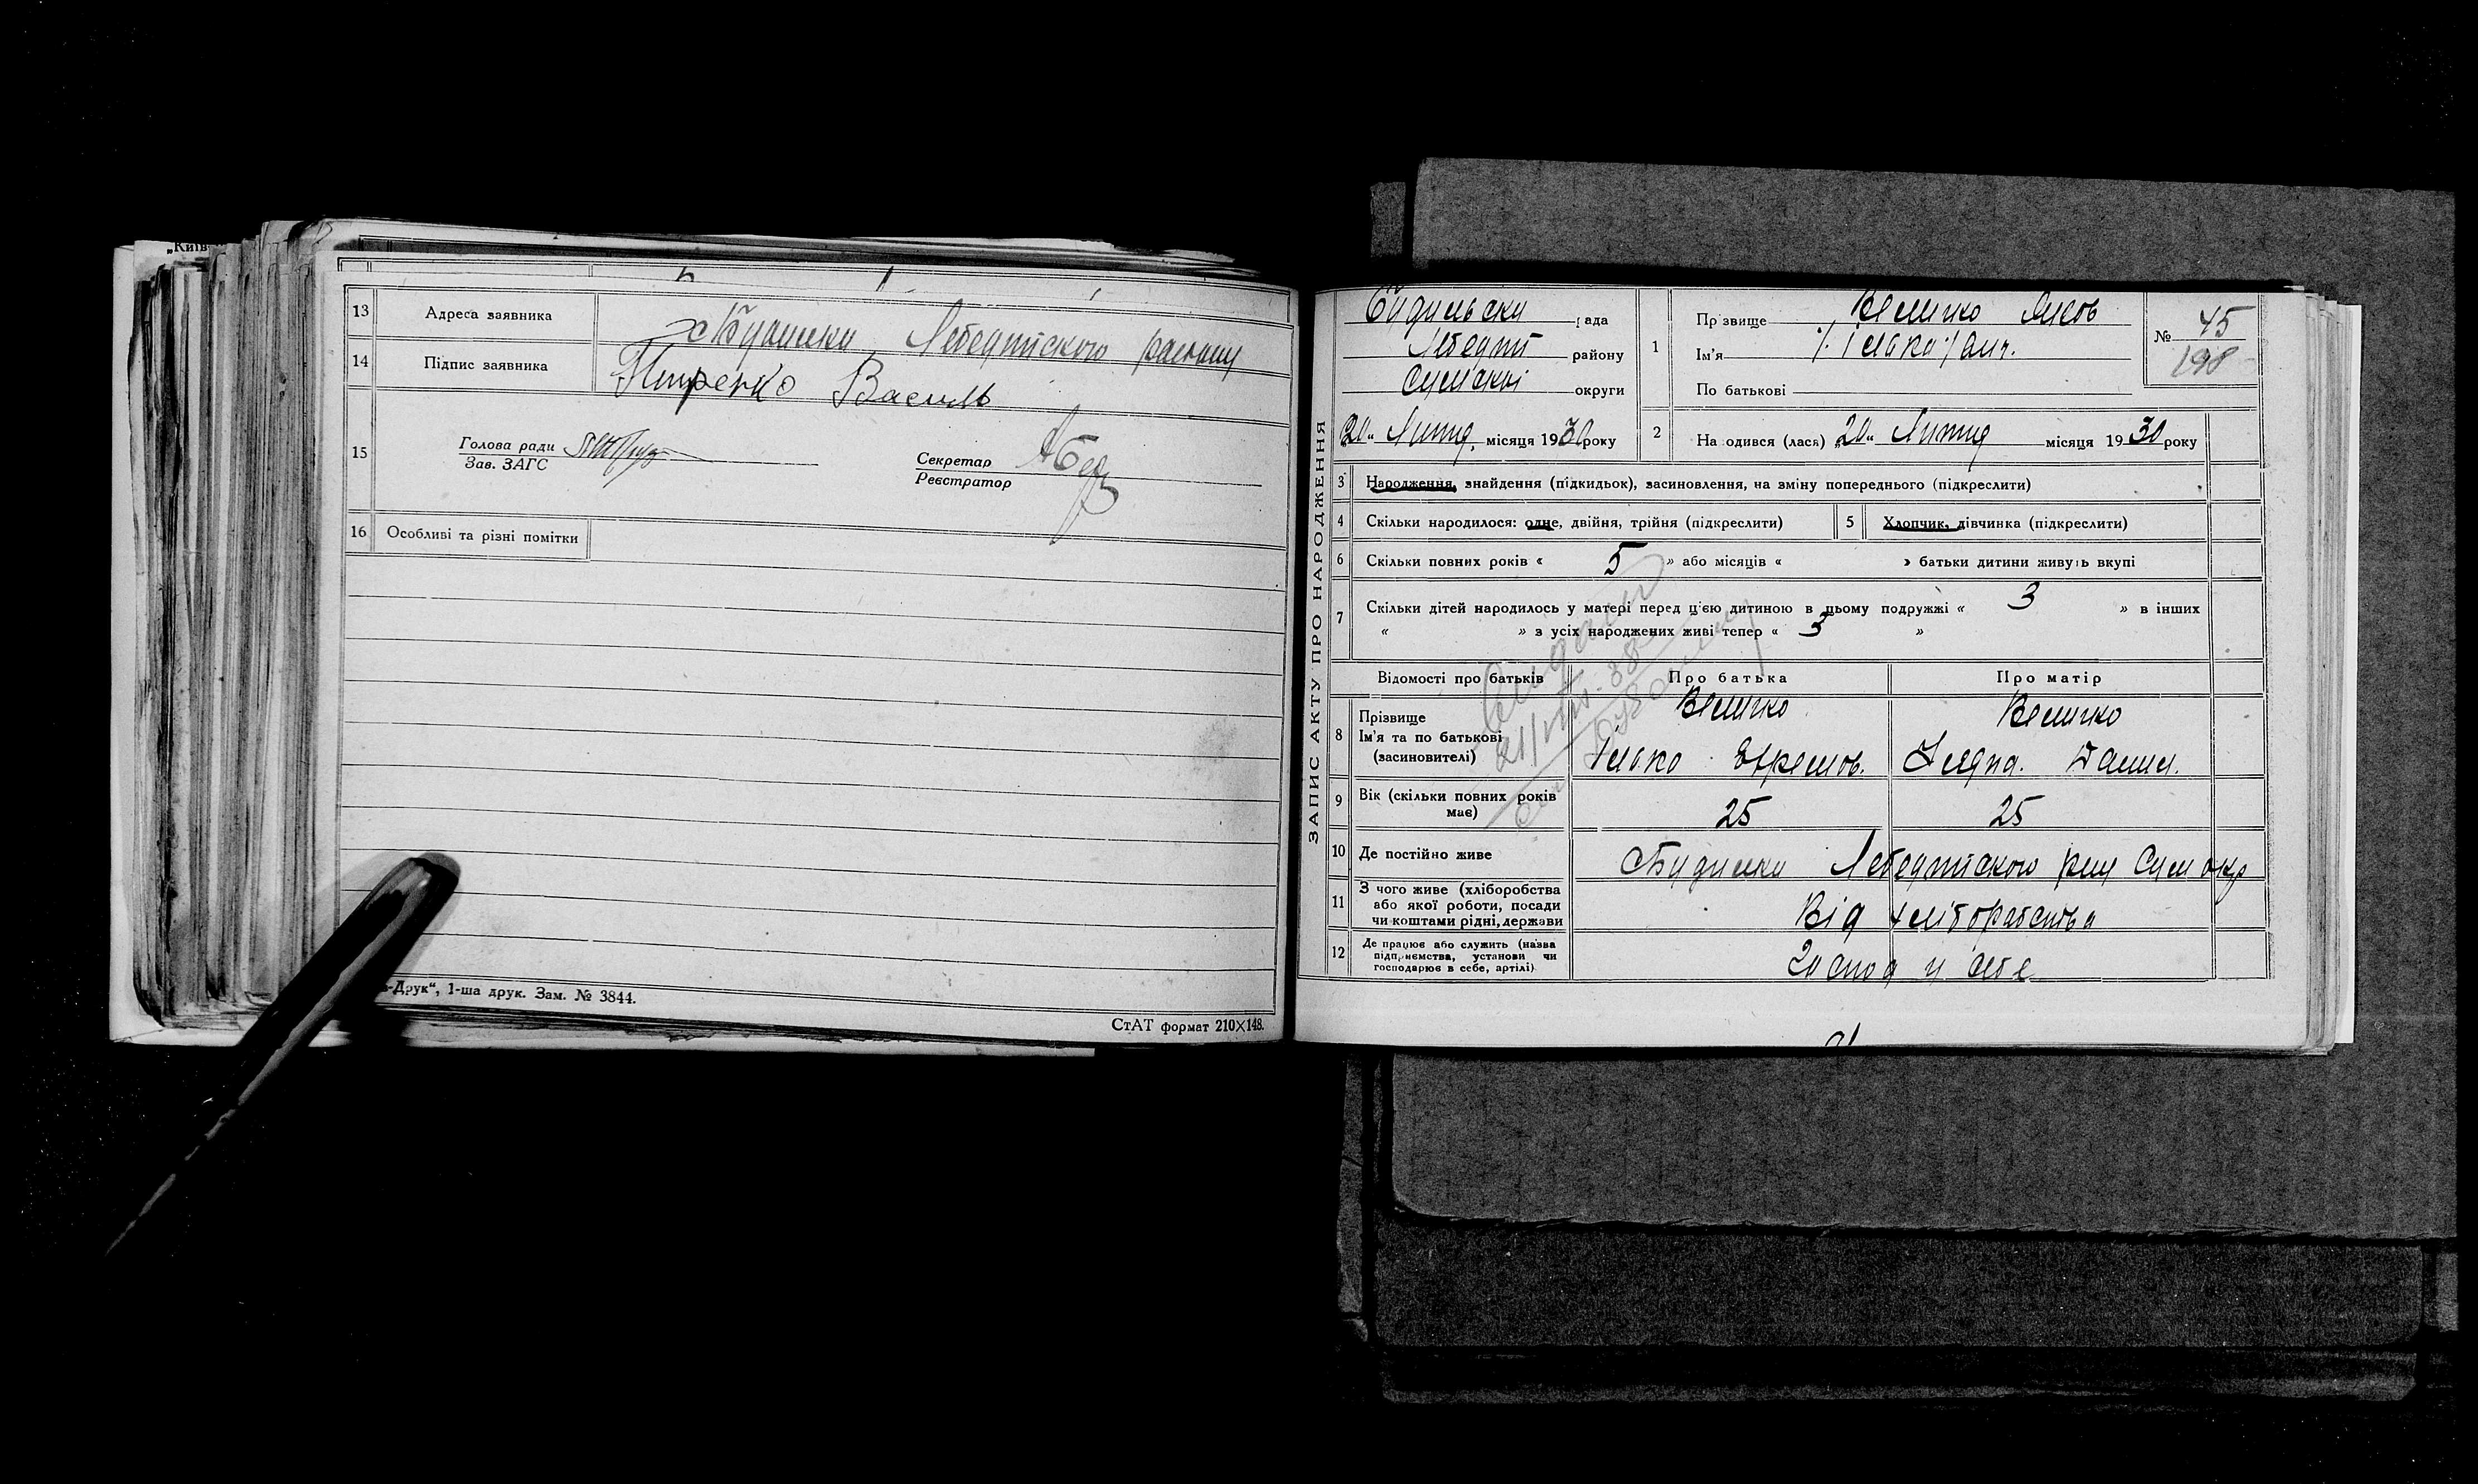 „Київ
13 Адреса заявника х Будилки Лебединського району
14 Підпис заявника Титренко Василь
15 Голова ради
Зав. ЗАГС
Секретар
Реєстратор
16 Особливі та різні помітки
-Друк“, 1-ша друк. Зам. № 3844.
СтАТ формат 210×148.
ЗАПИС АКТУ ПРО НАРОДЖЕННЯ
Будильска рада
Лебедин району
Сумской округи
20 " Липня місяця 1930 року
1 Прізвище Величко
Ім'я
По батькові
№ 45
198
2 На одився (лася) „20" Липня місяця 1930 року
3 Народження, знайдення (підкидьок), засиновлення, на зміну попереднього (підкреслити)
4 Скільки народилося: одне, двійня, трійня (підкреслити) 5 Хлопчик, дівчинка (підкреслити)
6 Скільки повних років « 5 » або місяців « » батьки дитини живуть вкупі
7 Скільки дітей народилось у матері перед цією дитиною в цьому подружжі « 3 » в інших
« » з усіх народжених живі тепер « 3 »
Відомості про батьків Про батька Про матір
8 Прізвище Величко Величко
Ім'я та по батькові
(засиновителі) Ілько Ефремов. Данил.
9 Вік (скільки повних років
має) 25 25
10 Де постійно живе с Будилки Лебединського рну Сум окр
11 З чого живе (хліборобства
або якої роботи, посади
чи коштами рідні, держави Від хліборобства
12 Де працює або служить (назва
підприємства, установи чи
господарює в себе, артілі) Господ у себе